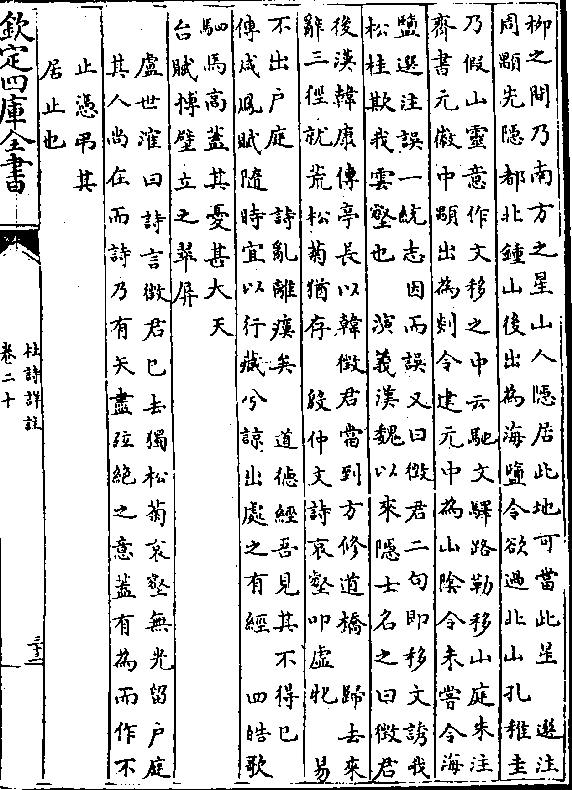 柳之間乃南方之星山人隱居此地可當此星　選注
周顒先隱都北鍾山後出為海鹽令欲過北山孔稚圭
乃假山靈意作文移之中云馳文驛路勒移山庭朱注
齊書元徽中顒出為剡令建元中為山陰令未嘗令海
鹽選注誤一統志因而誤又曰徵君二句即移文誘我
松桂欺我雲壑也　演義漢魏以來隱士名之曰徵君
後漢韓康傳亭長以韓徵君當到方修道橋　歸去來
辭三徑就荒松菊猶存　殷仲文詩哀壑叩虛牝　易
不出戶庭　詩亂離瘼矣　道德經吾見其不得已
傅咸鳳賦隨時宜以行藏兮諒出處之有經　四皓歌
駟馬高蓋其憂甚大天
台賦博壁立之翠屏
盧世㴶曰詩言徵君已去獨松菊哀壑無光留戶庭
其人尚在而詩乃有矢盡弦絕之意蓋有為而作不
止憑弔其
居止也
欽定四庫全書
杜詩詳註
卷二十
三十二